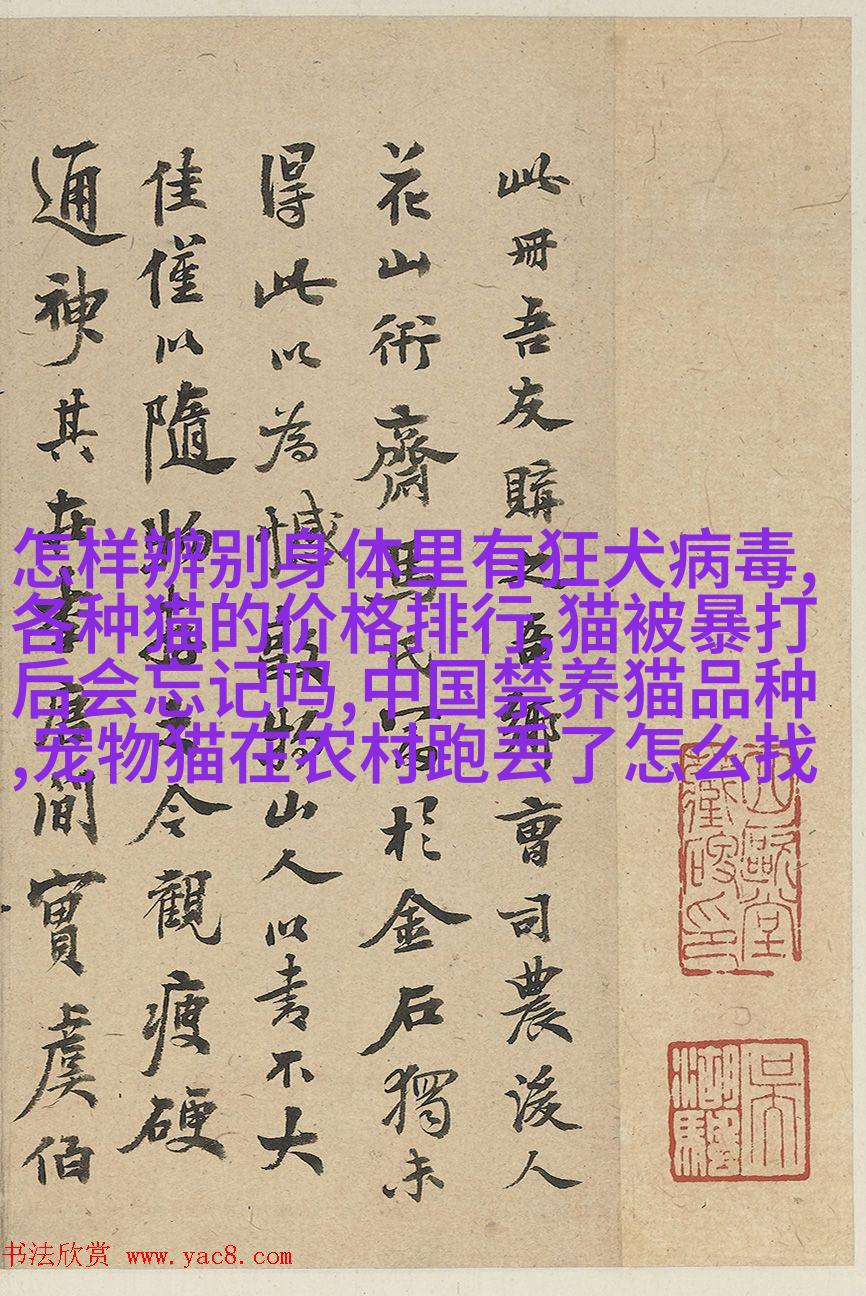 此冊吾友購之吾鄉曹司農後人
花山術齋馬氏富於金石獨未
得此以為憾山人以書不大
佳僅以隨物今觀瘦硬
通神其在李唐間實虞伯
怎样辨别身体里有狂犬病毒,
各种猫的价格排行,猫被暴打
后会忘记吗,中国禁养猫品种
,宠物猫在农村跑丢了怎么找
书法欣赏 www.yac8.com